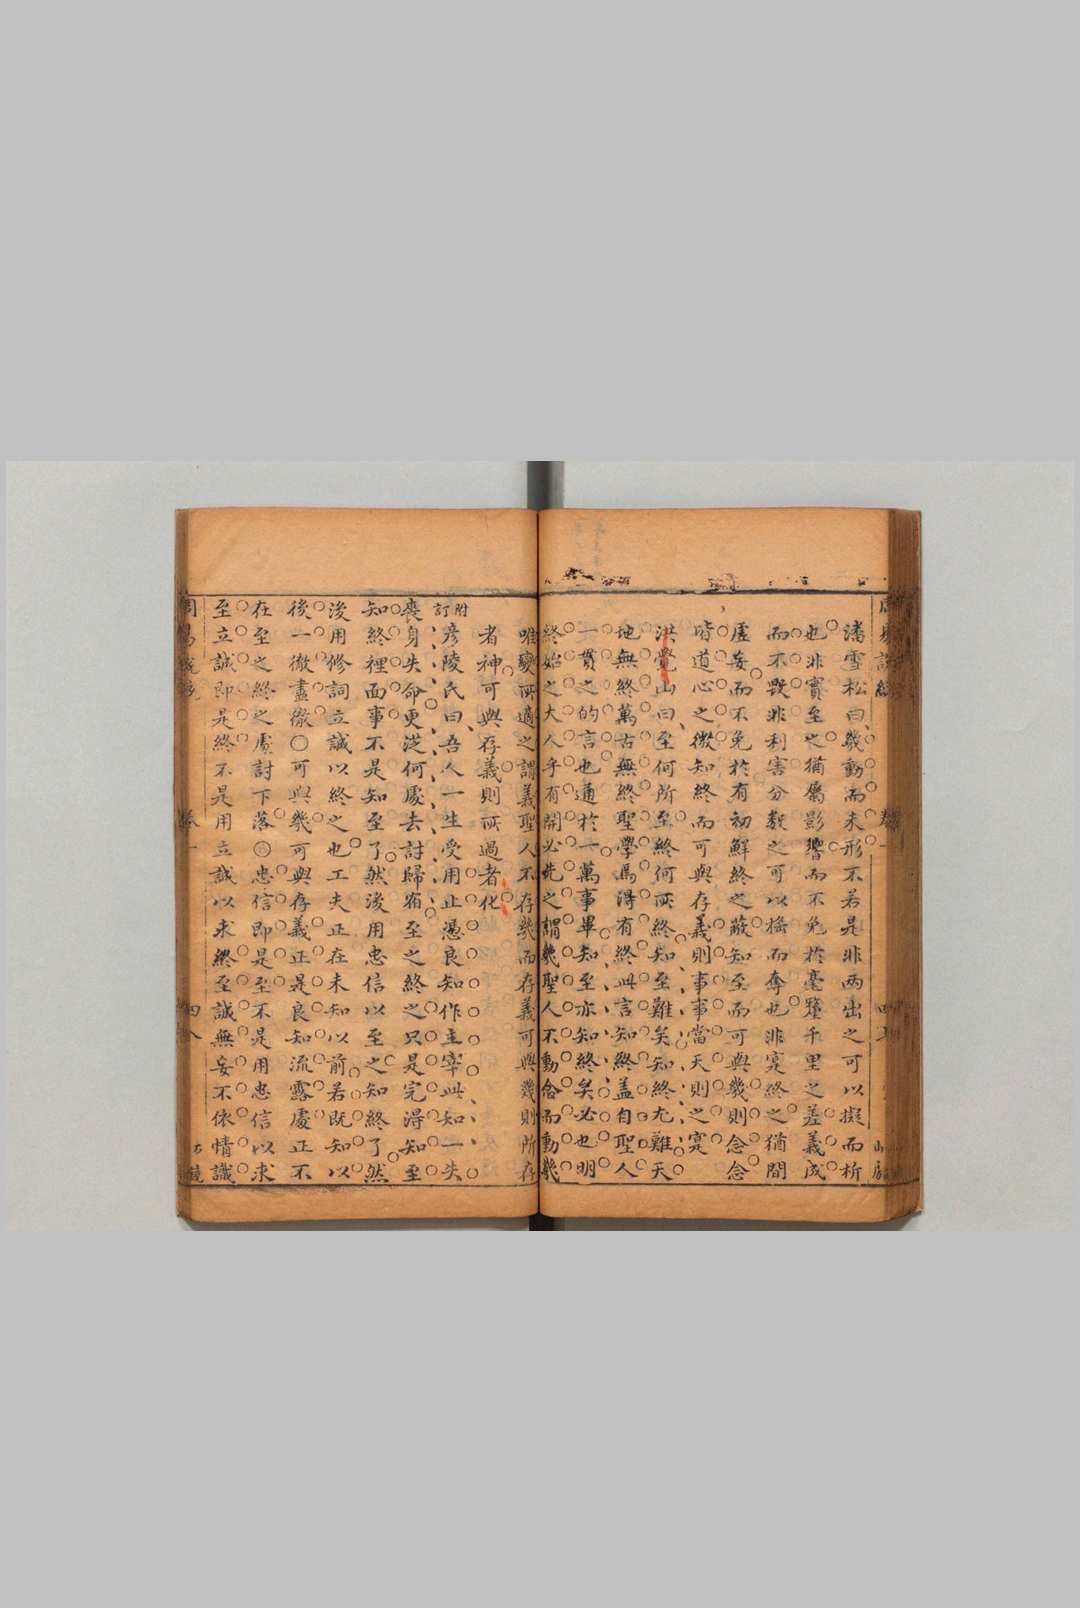 潘雪松曰幾動而未形不若是非兩出之可以擬而析
也非實至之猶屬影響而不免於毫釐千里之差義成
而不毀非利害分數之可以搖而奪也非寔終之猶間
虛妄而不免於有初鮮終之蔽知至而可與幾則念念
皆道心之微知終而可與存義則事事當天則之寔
洪覺山曰至何所至終何所終知至難矣知終尤難天
地無終萬古無終聖學焉得有終此言知終蓋自聖人
一貫之的言也通於一萬事畢知至亦知終矣必也明
終始之大人乎有開必先之謂幾聖人不動念而動幾
唯變所適之謂義聖人不存幾而存義可與幾則所存
者神可與存義則所過者化
附訂彥陵氏曰吾人一生受用止憑良知作主宰此知一失
喪身失命更從何處去討歸宿至之終之只是完得知至
知終裡面事不是知至了然後用忠信以至之知終了然
後用修詞立誠以終之也工夫正在未知以前若既知以
後一徹盡徹○可與幾可與存義正是良知流露處正不
在至之終之處討下落◎忠信即是至不是用忠信以求
至立誠即是終不是用立誠以求終至誠無妄不依情識
卷一
四八